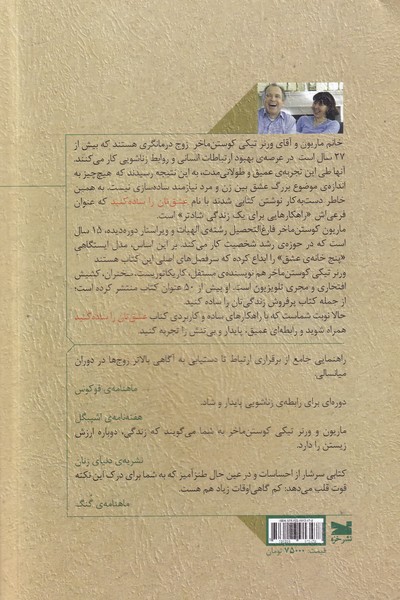 خانم ماریون و آقای ورنر تیکی کوستن‌ماخر زوج درمانگری هستند که بیش از
۲۷ سال است در عرصه‌ی بهبود ارتباطات انسانی و روابط زناشویی کار می‌کنند.
آنها طی این تجربه‌ی عمیق و طولانی‌مدت، به این نتیجه رسیدند که هیچ‌چیز به
اندازه‌ی موضوع بزرگ عشق بین زن و مرد نیازمند ساده‌سازی نیست. به همین
خاطر دست‌به‌کار نوشتن کتابی شدند با نام عشق‌تان را ساده کنید که عنوان
فرعی‌اش «راهکارهایی برای یک زندگی شادتر» است.
ماریون کوستن‌ماخر فارغ‌التحصیل رشته‌ی الهیات و ویراستار دوره‌دیده، ۱۵ سال
است که در حوزه‌ی رشد شخصیت کار می‌کند. بر این اساس، مدل ایستگاهیِ
«پنج خانه‌ی عشق» را ابداع کرده که سرفصل‌های اصلی این کتاب هستند.
ورنر تیکی کوستن‌ماخر هم نویسنده‌ی مستقل، کاریکاتوریست، سخنران، کشیش
افتخاری و مجری تلویزیون است. او بیش از ۵۰ عنوان کتاب منتشر کرده است؛
از جمله کتاب پرفروش زندگی‌تان را ساده کنید.
حالا نوبت شماست که با راهکارهای ساده و کاربردی کتاب عشق‌تان را ساده کنید
همراه شوید و رابطه‌ای عمیق، پایدار و بی‌تنش را تجربه کنید.
راهنمایی جامع از برقراری ارتباط تا دستیابی به آگاهی بالاتر زوج‌ها در دوران
میانسالی.
ماهنامه‌ی فوکوس
دوره‌ای برای رابطه‌ی زناشویی پایدار و شاد.
هفته‌نامه‌ی اشپیگل
ماریون و ورنر تیکی کوستن‌ماخر به شما می‌گویند که زندگی، دوباره ارزش
زیستن را دارد.
نشریه‌ی دنیای زنان
کتابی سرشار از احساسات و در عین حال طنزآمیز که به شما برای درک این نکته
قوت قلب می‌دهد: کم گاهی‌اوقات زیاد هم هست.
ماهنامه‌ی گنگ
نشر خزه
قیمت: ۷۵۰۰۰ تومان